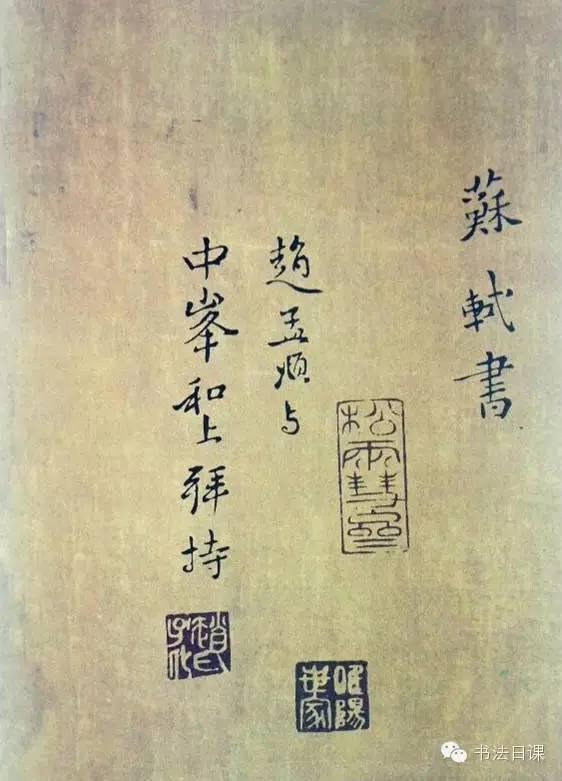 蘇軾書
趙孟頫与
中峯和上拜持
松雪齋
趙氏子昂
睢陽世家
书法日课